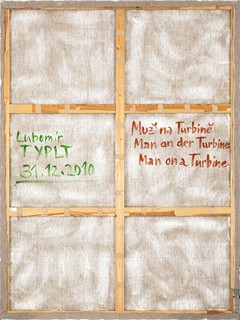 Lubomír
TYPLT
31.12.2010
Muž na Turbině
Man an der Turbine
Man on a Turbine